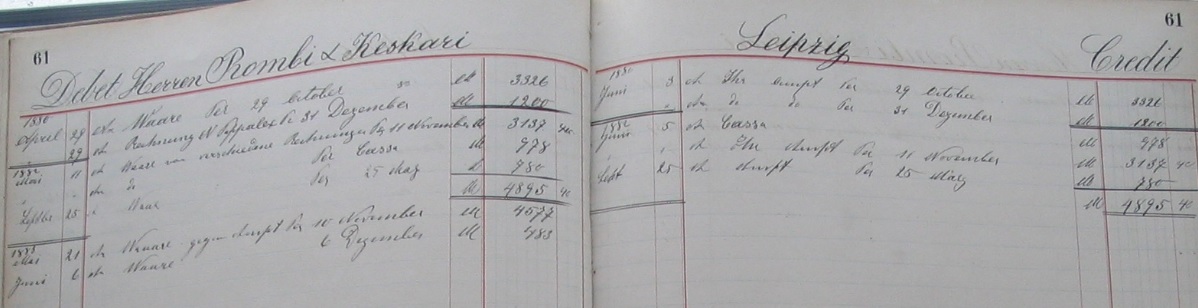 61
Debet Herren Rombi & Keskari
1880
April 29 An Waare Per 29 October M 3326
29 An Rechnung N Pappalexi P 31 Dezember M 1200
1882
Mai 11 An Waare von verschiedene Rechnungen Per 11 November M 3137 40
" An do Per Cassa M 978
Septbr 25 " Waar Per 25 März M 780
M 4895 40
1883
Mai 21 An Waare gegen Accept Per 10 November M 4577
Juni 6 An Waare 6 Dezember M 483
61
Leipzig Credit
1880
Juni 3 An Ihr Accept Per 29 October M 3326
" An do do Per 31 Dezember M 1200
1882
Juni 5 An Cassa M 978
" An Ihr Accept Per 11 November M 3137 40
Sept 25 An Accept Per 25 März M 780
M 4895 40